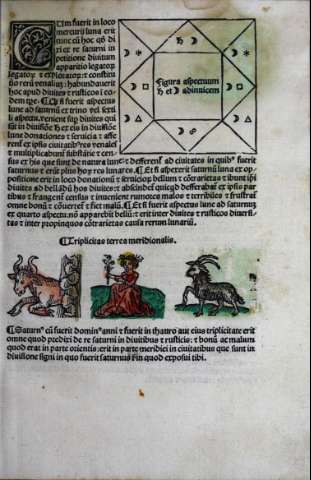 Um fuerit in loco
mercurii luna erit
tunc eū hoc qđ di
xi: ⁊ re saturni in
petitione diuitum
apparitio legatoꝝ
legatoꝝ ⁊ exploratoꝝ: ⁊ constituti
reꝝ venaliū: habundauerit
hoc apud diuites ⁊ rusticos i eo
dem tpe.
fuerit aspectus
lune ad saturnū ex trino vel sexti
li aspectu. venient sup diuites qui
sūt in diuisiōe
lune donationes ⁊ seruicia ⁊ affe
rent ex ipsis ciuitatibꝰ res venales
⁊ multiplicabunt substātie ⁊ cen
sus ex his que sunt de natura lune:
Figura aspectuum
♄ et ☽ adinuicem
⁊ defferent ad ciuitates in quibꝰ fuerit
saturnus ⁊ erit plus hoc ⁊ res lunares.
Et si aspexerit saturnū luna ex op
positione erit in loco donationū ⁊ seruicioꝝ bellum ⁊ cōtrarietas ⁊ ibunt ipsi
diuites ad bellādū hos diuites: ⁊ abscindēt quicqđ defferebāt ex ipsis par
tibus ⁊ frangent census ⁊ inuenient rumores malos ⁊ terribiles ⁊ frustrat
omne bonū ⁊ cōuertet ⁊ fiet malū.
Et si fuerit aspectus lune ad saturnū
ex quarto aspectu nō apparebit bellū: ⁊ erit inter diuites ⁊ rusticos diuersi
tas ⁊ inter propinquos cōtrarietas causa rerum lunariū.
¶ Triplicitas terrea meridionalis.
¶ Saturnꝰ cū fuerit dominꝰ anni ⁊ fuerit in thauro aut eius triplicitate erit
omne quod predixi de re saturni in diuitibus ⁊ rusticis: ⁊ bonū ac malum
quod erat in parte orientis: erit in parte meridiei in ciuitatibus que sunt in
diuisione signi in quo fuerit saturnus fm quod exposui tibi.